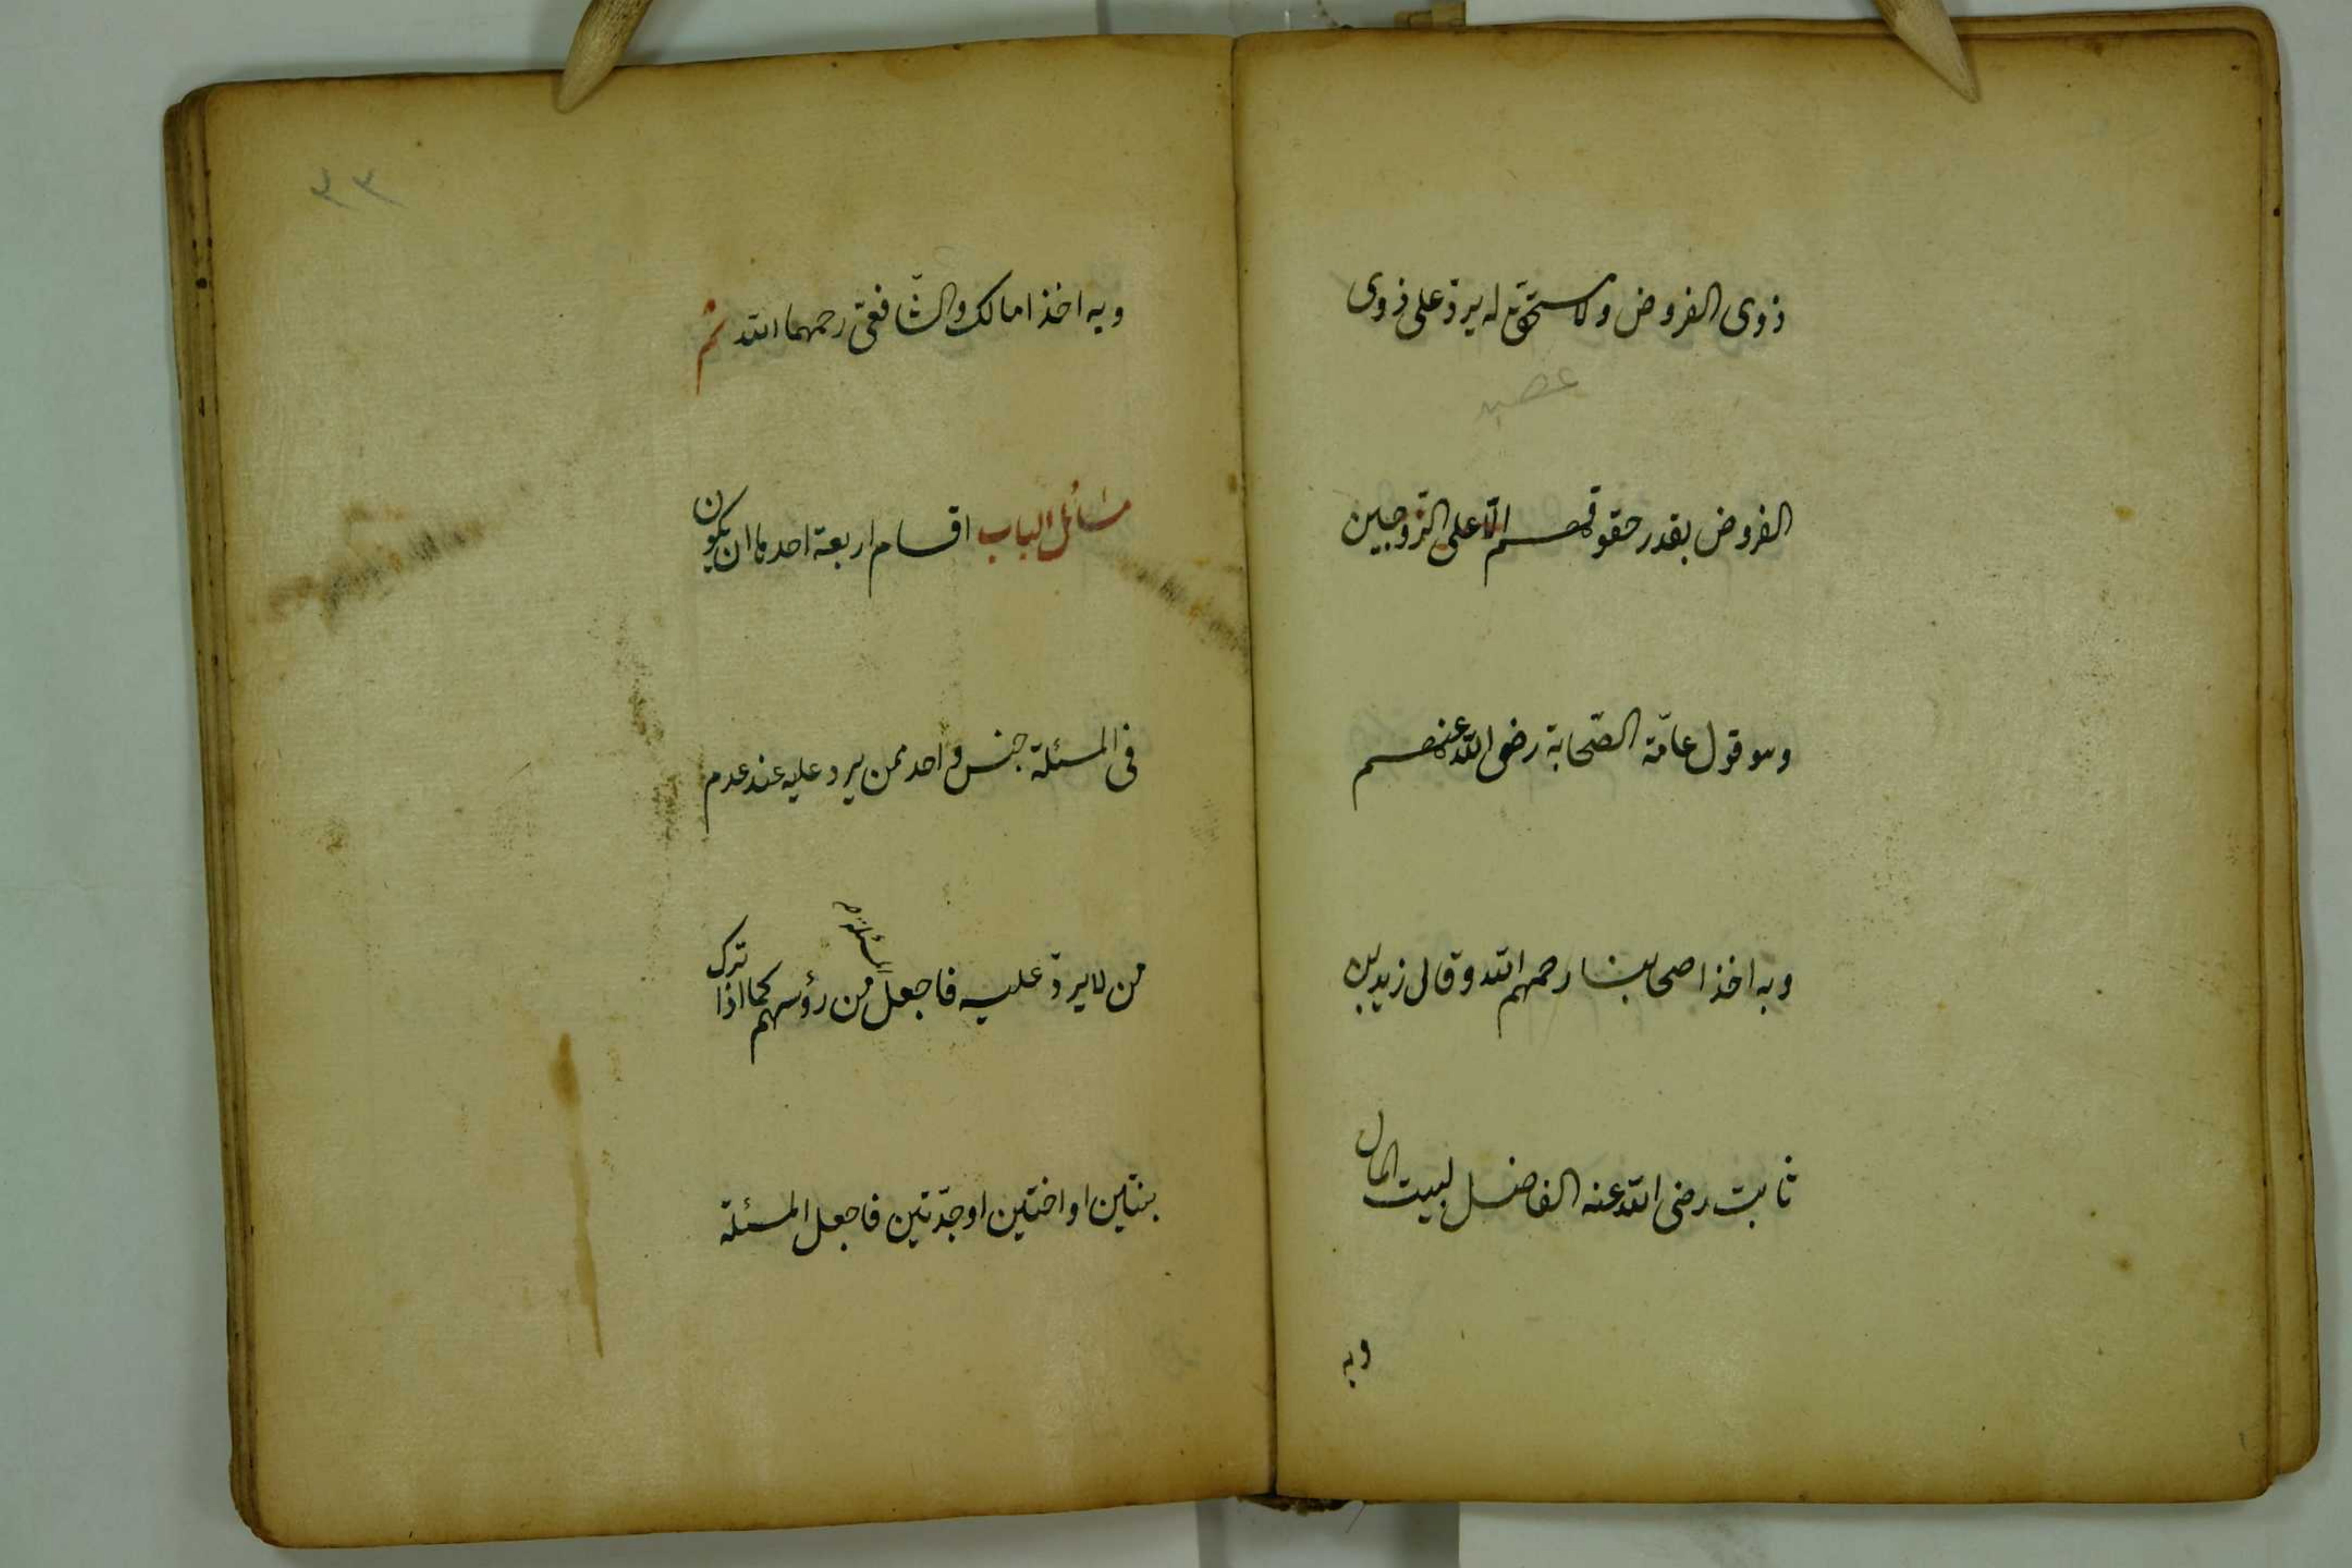 ذوى الفروض ولا مستحق له يردّ على ذوى
عصبه
الفروض بقدر حقوقهم الّا على الزّوجين
وهو قول عامّة الصّحابة رضى الله عنهم
وبه اخذ اصحابنا رحمهم الله وقال زيد بن
ثابت رضى الله عنه الفاضل لبيت المال
وبه
٣٣
وبه اخذ امالك والشّافعىّ رحمهما الله ثم
مسائل الباب اقسام اربعة احدها ان يكون
فى المسئلة جنس واحد ممن يرد عليه عند عدم
من لا يردّ عليه فاجعل المسئلة من رؤسهم كما اذا ترك
بنتين او اختين او جدّتين فاجعل المسئلة